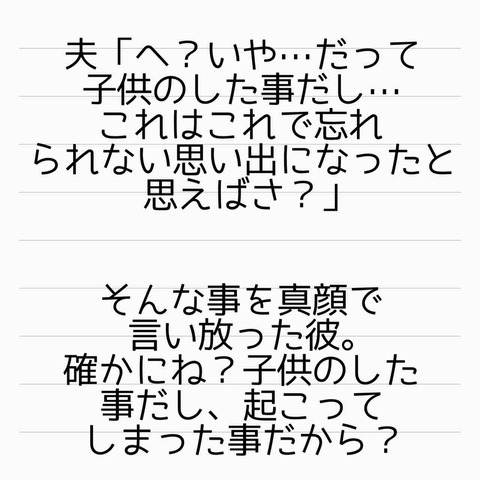 夫「へ？いや…だって
子供のした事だし…
これはこれで忘れ
られない思い出になったと
思えばさ？」
そんな事を真顔で
言い放った彼。
確かにね？子供のした
事だし、起こって
しまった事だから？